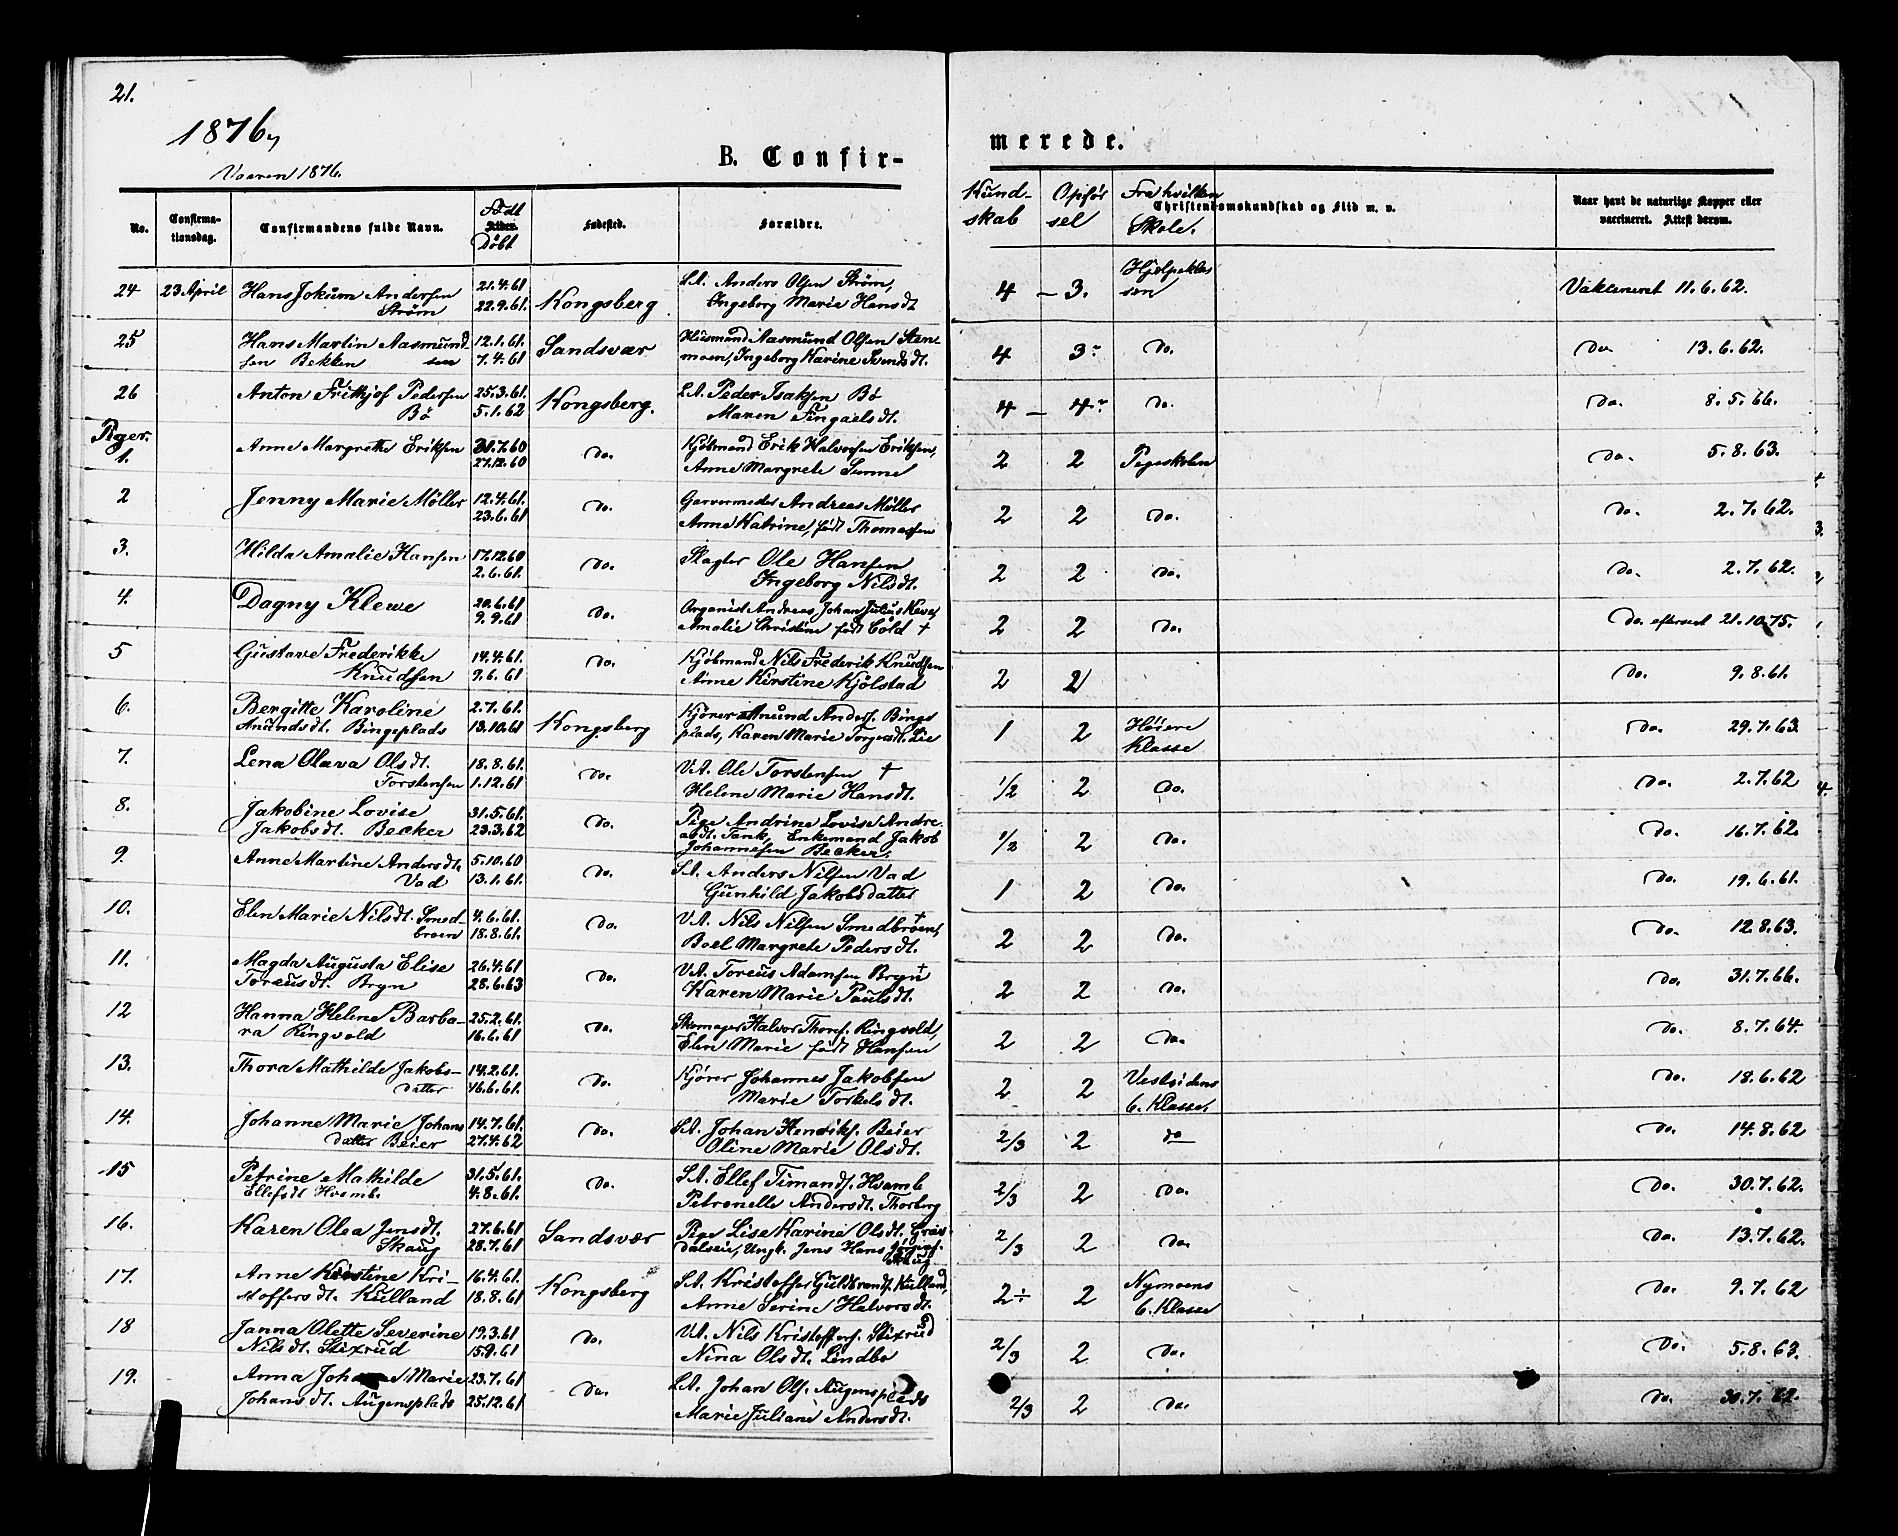 21.
1876,
Vaaren 1876.
B. Confir-
merede.
No.
Confirma-
tionsdag.
Confirmandens fulde Navn.
Født
Alder.
Døbt
Fødested.
Forældre.
Kund-
skab
Opfør
sel
Fra hvilken
Skole.
Christendomskundskab og Flid m. v.
Naar havt de naturlige Kopper eller
vaccineret. Attest derom.
24 23 April Hans Jokum Andersen 21.4.61 Kongsberg S.A. Anders Olsen Strøm, 4 – 3. Hjelpeklas Vakcineret 11.6.62.
Strøm 22.9.61. Ingeborg Marie Hansdt sen
25 Hans Martin Aasmund 12.1.61. Sandsvær Husmand Aasmund Olsen Sten 4 3- do. do 13.6.62.
sen Bekken 7.4.61 moen, Ingeborg Karine Svendsdt.
26 Anton Frithjof Pedersen 25.3.61. Kongsberg. S.A. Peder Isaksen Bø 4 – 4- do. do. 8.5.66.
Bø 5.1.62 Maren Fingalsdt.
Piger.
1. Anne Margrethe Eriksen 31.7.60 do. Kjøbmand Erik Halvorsen Eriksen, 2 2 Pigeskolen do. 5.8.63.
27.12.60 Anne Margrete
2 Jenny Marie Møller 12.4.61. do. Garvermester Andreas Møller 2 2 do. do. 2.7.62.
23.6.61 Anne Katrine, født Thomassen
3. Hilda Amalie Hansen 17.12.60 do. Slagter Ole Hansen 2 2 do. do. 2.7.62.
2.6.61. Ingeborg Nilsdt.
4. Dagny Klewe 20.6.61 do. Organist Andreas Johan Julius Klewe, 2 2 do. do. efterseet 21.10.75.
9.9.61 Amalie Christine født Cold †
5 Gustave Frederikke 14.4.61. do. Kjøbmand Nils Frederik Knudsen 2 2 do. 9.8.61.
Knudsen 9.6.61 Anne Kirstine Kjølstad
6. Bergitte Karoline 2.7.61. Kongsberg Kjører Anund Anders. Binge 1 2 Høiere do. 29.7.63.
Anundsdt. Bingeplads 13.10.61 plads, Karen Marie Torgersdt. Lie Klasse
7. Lena Olava Olsdt. 18.8.61. do. V.A. Ole Torstensen † 1/2 2 do. do. 2.7.62
Torstensen 1.12.61 Helene Marie Hansdt.
8. Jakobine Lovise 31.5.61. do. Pige Andrine Lovise Andre- 1/2 2 do. do. 16.7.62.
Jakobsdt. Becker 23.3.62 asdt. Tank, Enkemand Jakob
Johannesen Becker.
9. Anne Martine Andersdt. 5.10.60 do. S.A. Anders Nilsen Vad 1 2 do. do. 19.6.61.
Vad 13.1.61. Gunhild Jakobsdatter
10. Elen Marie Nilsdt. Smed- 4.6.61. do. V.A. Nils Nilsen Smedbroen, † 2 2 do. do. 12.8.63.
broen 18.8.61. Boel Margrete Pedersdt.
11. Magda Augusta Elise 26.4.61 do. V.A. Toreus Adamsen Bryn † 2 2 do. do. 31.7.66.
Toreusdt. Bryn 28.6.63 Karen Marie Paulsdt.
12 Hanna Helene Barba- 25.2.61. do. Skomager Halvor Thores. Ringvold, 2 2 do. do. 8.7.64.
ra Ringvold 16.6.61 Elen Marie født Hansen
13. Thora Mathilde Jakobs- 14.2.61. do. Kjører Johannes Jakobsen 2 2 Vestsidens do. 18.6.62
datter 16.6.61. Marie Torkelsdt. 6. Klasse.
14. Johanne Marie Johans 14.7.61. do. S.A. Johan Henriks. Beier 2/3 2 do do. 14.8.62
datter Beier 27.4.62 Oline Marie Olsdt.
15 Petrine Mathilde 31.5.61. do. S.A. Ellef Timands. Hvamb 2/3 2 do. do. 30.7.62.
Ellefsdt Hvamb. 4.8.61. Petronelle Andersdt. Thorberg
16. Karen Olea Jensdt. 27.6.61 Sandsvær Pige Lise Karine Olsdt. Græs- 2/3 2 do. do. 13.7.62.
Skaug 28.7.61 dalseie, Ungk. Jens Hans
Skaug
17. Anne Kirstine Kri- 16.4.61. Kongsberg S.A. Kristoffer Guldbrands. Kulland, 2 ÷ 2 Nymoens do. 9.7.62
stoffersdt. Kulland 18.8.61 Anne Serine Halvorsdt. 6. Klasse
18 Janna Olette Severine 19.3.61 do. V.A. Nils Kristoffers. Stixrud 2/3 2 do. do. 5.8.63.
Nilsdt. Stixrud 15.9.61 Nina Olsdt. Lindbo
19. Anna Johanne Marie 23.7.61 do. S.A. Johan Ols. Augensplads 2/3 2 do. do. 30.7.62.
Johansdt. Augensplads 25.12.61 Marie Juliane Andersdt.